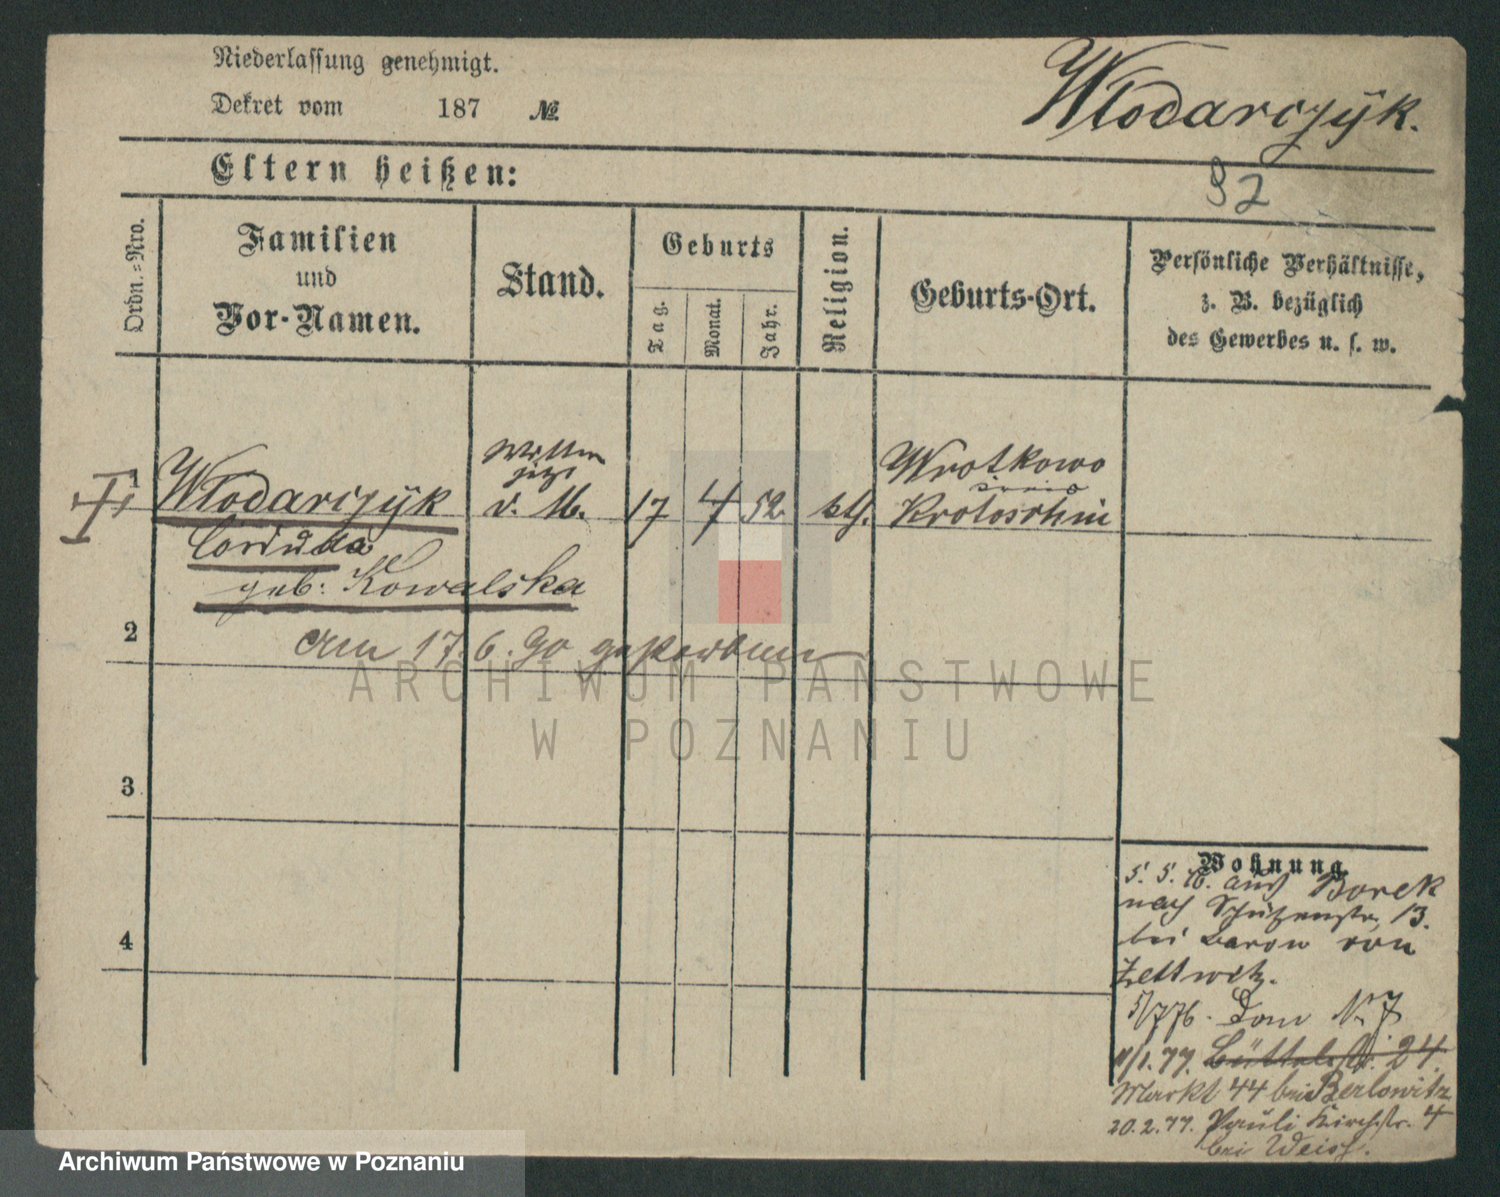 Niederlassung genehmigt.
Dekret vom 187 №
Włodarczÿk.
92
Eltern heißen:
Ordn.=Nro.
Familien
und
Vor-Namen.
Stand.
Geburts
Tag.
Monat.
Jahr.
Religion.
Geburts-Ort.
Persönliche Verhältnisse,
z. B. bezüglich
des Gewerbes u. s. w.
Włodarczÿk
d. M.
17 4 52
kth.
Wrotkowo
Kreis
Krotoschin
geb. Kowalska
2
Am 17.6.90 gestorben
3
4
Wohnung
5. 5. 76. aus Borek
nach Schützenstr. 13.
bei Baron von
Zettwitz.
5/7 76. Dom Nr 7
/1. 77. Büttelstr. 24.
Markt 44 bei Berlowitz
20.2.77. Pauli Kirchstr. 4
bei Weiss.
ARCHIWUM PAŃSTWOWE
W POZNANIU
Archiwum Państwowe w Poznaniu